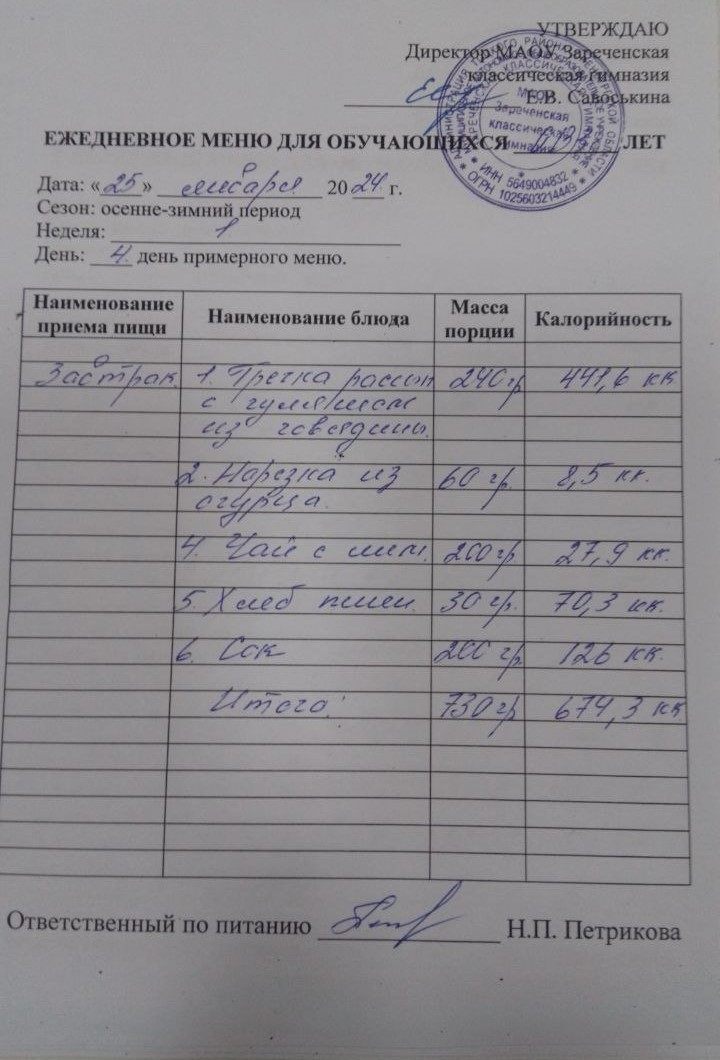 УТВЕРЖДАЮ
Директор МАОУ Зареченская
классическая гимназия
Е.В. Савоськина
МАОУ
Зареченская
классическая
гимназия
* ИНН 5649004832 *
* ОГРН 1025603214449 *
ЕЖЕДНЕВНОЕ МЕНЮ ДЛЯ ОБУЧАЮЩИХСЯ ЛЕТ
Дата: «25» января 2024 г.
Сезон: осенне-зимний период
Неделя: 1
День: 4 день примерного меню.
Наименование приема пищи Наименование блюда Масса порции Калорийность
Завтрак 1. Гречка рассып 240 гр 441,6 кк
с гуляшом
из говядины.
2. Нарезка из 60 гр. 8,5 кк.
огурца.
4. Чай с лим. 200 гр 27,9 кк.
5. Хлеб пшен. 30 гр. 70,3 кк.
6. Сок 200 гр 126 кк.
Итого: 730 гр 674,3 кк
Ответственный по питанию Н.П. Петрикова